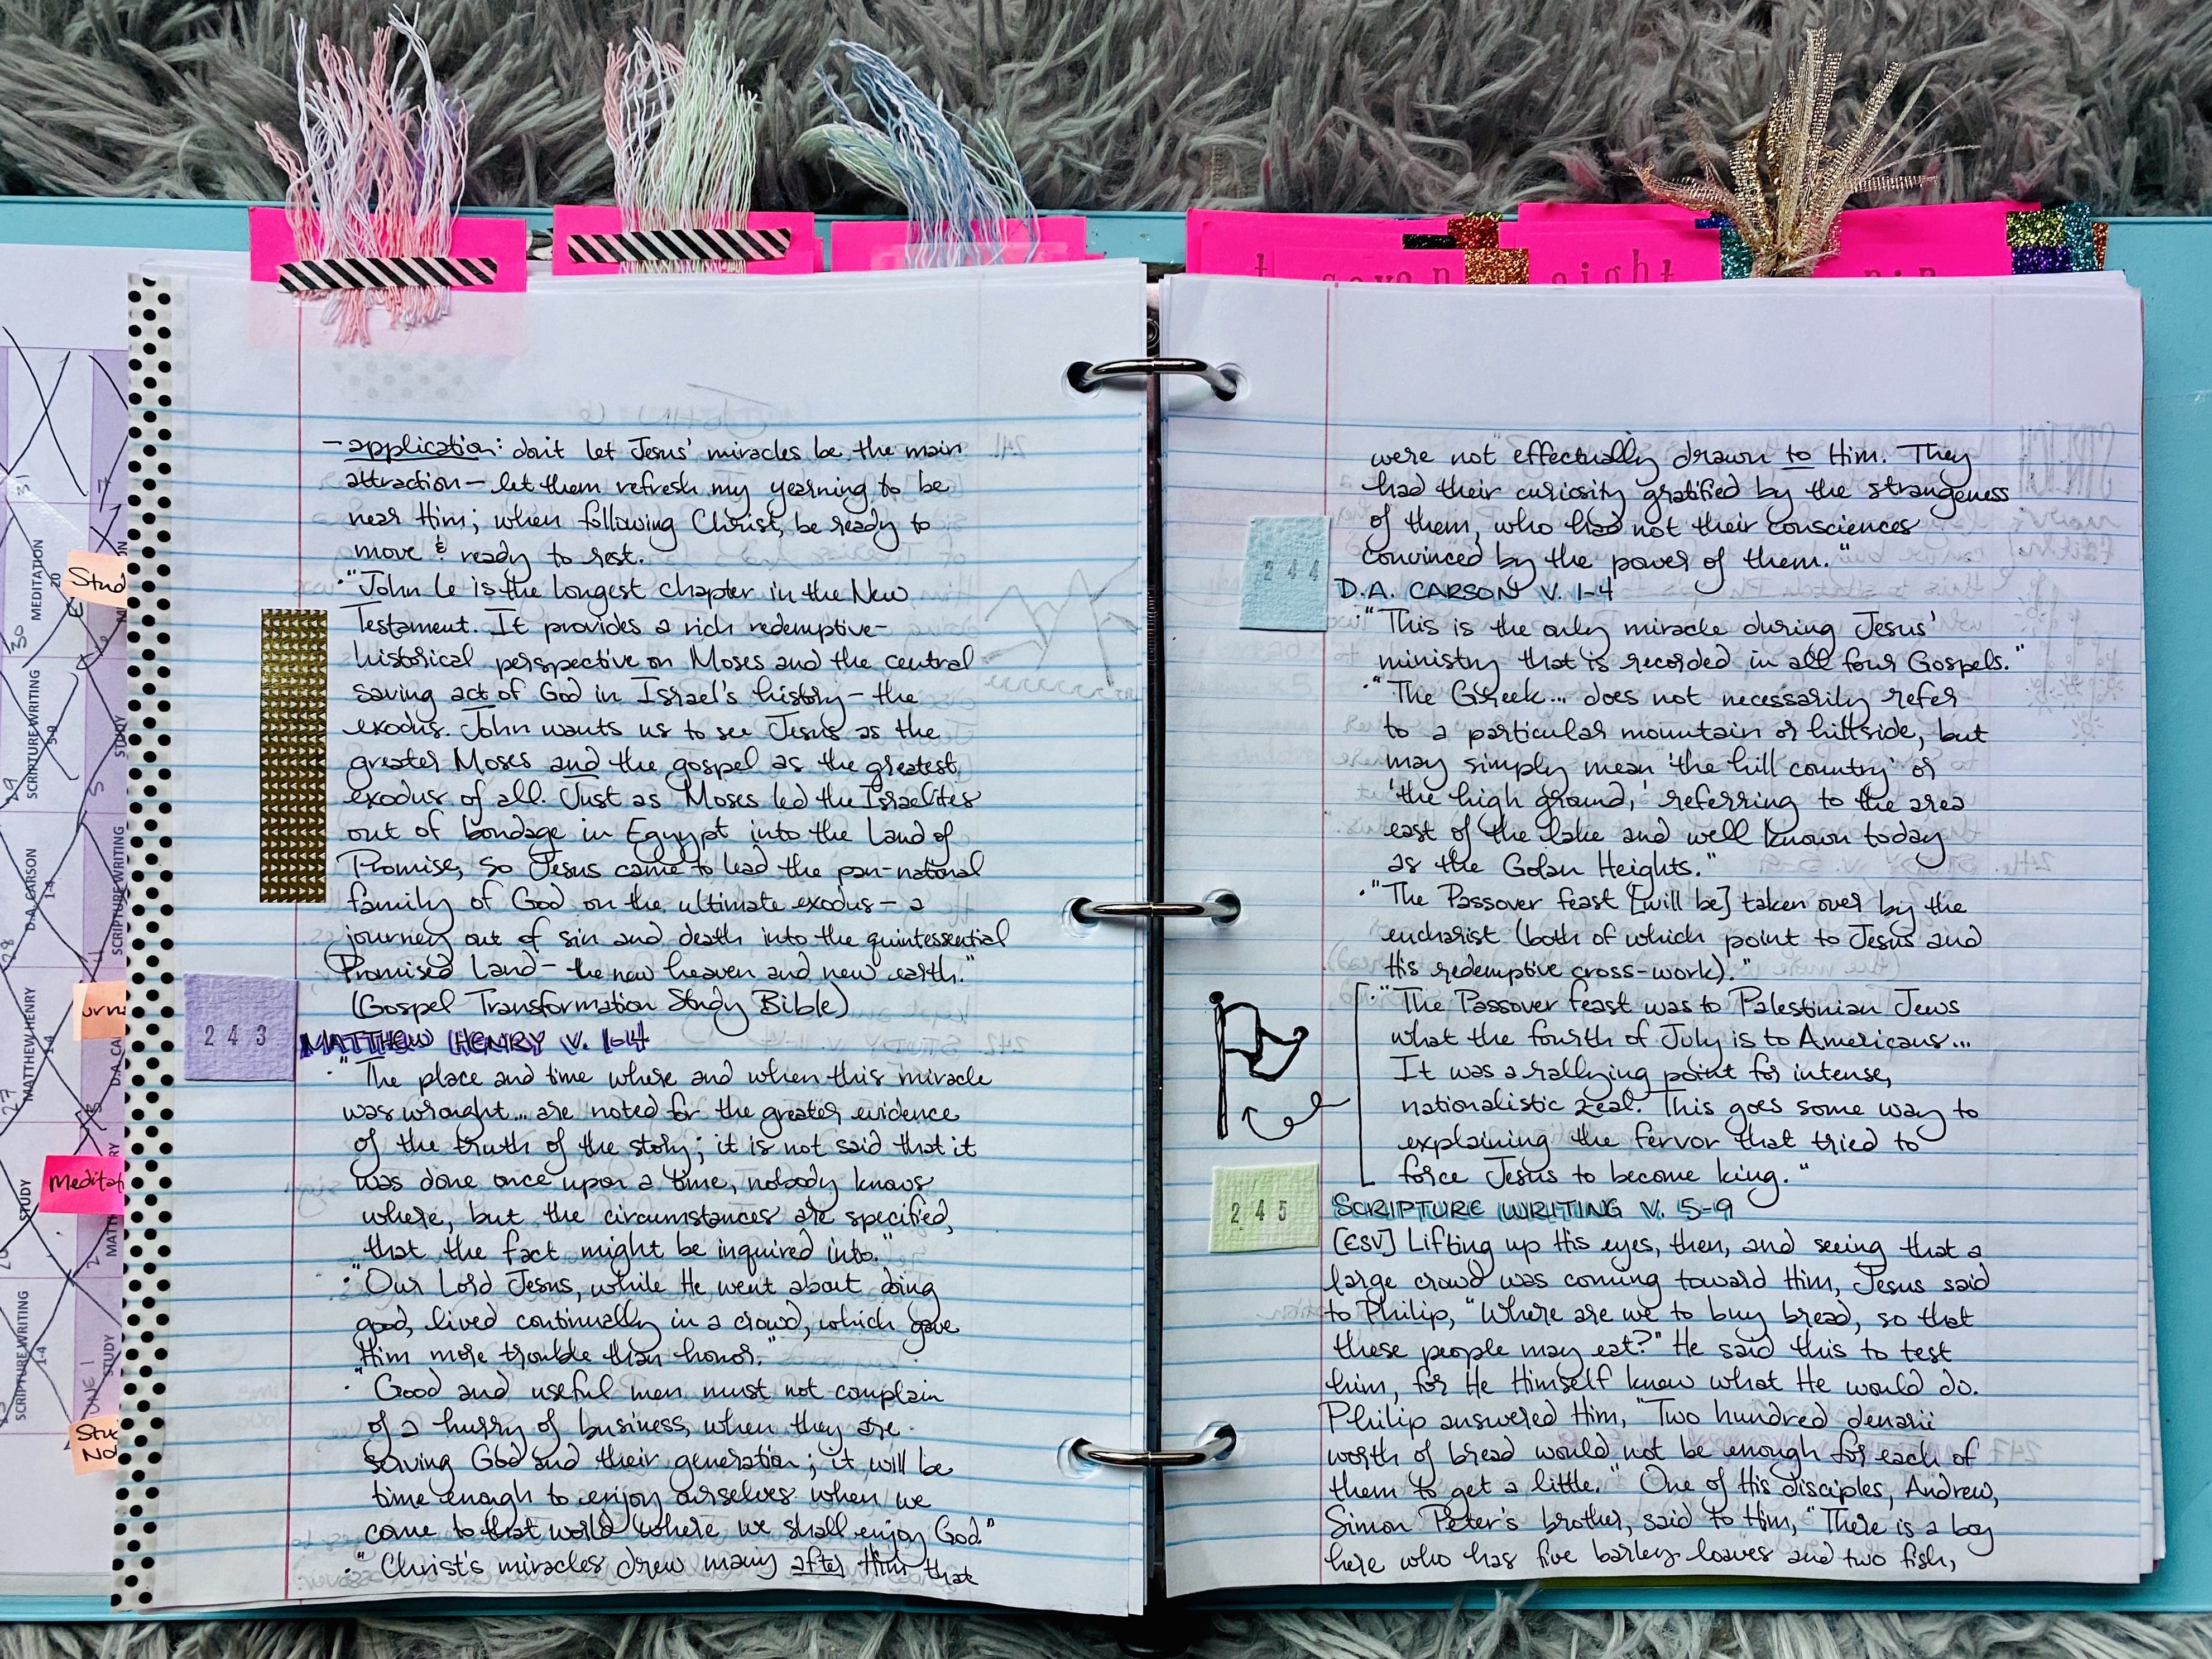 seven
eight
nin
— application: don't let Jesus' miracles be the main
attraction — let them refresh my yearning to be
near Him; when following Christ, be ready to
move & ready to rest.
• "John 6 is the longest chapter in the New
Testament. It provides a rich redemptive-
historical perspective on Moses and the central
saving act of God in Israel's history — the
exodus. John wants us to see Jesus as the
greater Moses and the gospel as the greatest
exodus of all. Just as Moses led the Israelites
out of bondage in Egypt into the Land of
Promise, so Jesus came to lead the pan-national
family of God on the ultimate exodus — a
journey out of sin and death into the quintessential
Promised Land — the new heaven and new earth."
(Gospel Transformation Study Bible)
243
MATTHEW HENRY V. 1-4
• "The place and time where and when this miracle
was wrought... are noted for the greater evidence
of the truth of the story; it is not said that it
was done once upon a time, nobody knows
where, but the circumstances are specified,
that the fact might be inquired into."
• "Our Lord Jesus, while He went about doing
good, lived continually in a crowd, which gave
Him more trouble than honor."
• "Good and useful men must not complain
of a hurry of business, when they are
serving God and their generation; it will be
time enough to enjoy ourselves when we
come to that world where we shall enjoy God."
• "Christ's miracles drew many after Him that
were not effectually drawn to Him. They
had their curiosity gratified by the strangeness
of them, who had not their consciences
convinced by the power of them."
244
D.A. CARSON V. 1-4
• "This is the only miracle during Jesus'
ministry that is recorded in all four Gospels."
• "The Greek... does not necessarily refer
to a particular mountain or hillside, but
may simply mean 'the hill country' or
'the high ground,' referring to the area
east of the lake and well known today
as the Golan Heights."
• "The Passover feast [will be] taken over by the
eucharist (both of which point to Jesus and
His redemptive cross-work)."
• "The Passover feast was to Palestinian Jews
what the fourth of July is to Americans...
It was a rallying point for intense,
nationalistic zeal. This goes some way to
explaining the fervor that tried to
force Jesus to become king."
245
SCRIPTURE WRITING V. 5-9
[ESV] Lifting up His eyes, then, and seeing that a
large crowd was coming toward Him, Jesus said
to Philip, "Where are we to buy bread, so that
these people may eat?" He said this to test
him, for He Himself knew what He would do.
Philip answered Him, "Two hundred denarii
worth of bread would not be enough for each of
them to get a little." One of His disciples, Andrew,
Simon Peter's brother, said to Him, "There is a boy
here who has five barley loaves and two fish,
MEDITATION
20
30
31
7
SCRIPTURE WRITING
5-9
29
D.A. CARSON
1-4
28
MATTHEW HENRY
1-4
27
STUDY
SCRIPTURE WRITING
1-4
STUDY
5
SCRIPTURE WRITING
D.A. CA
STUDY
Stud
urna
Meditat
Stu
No